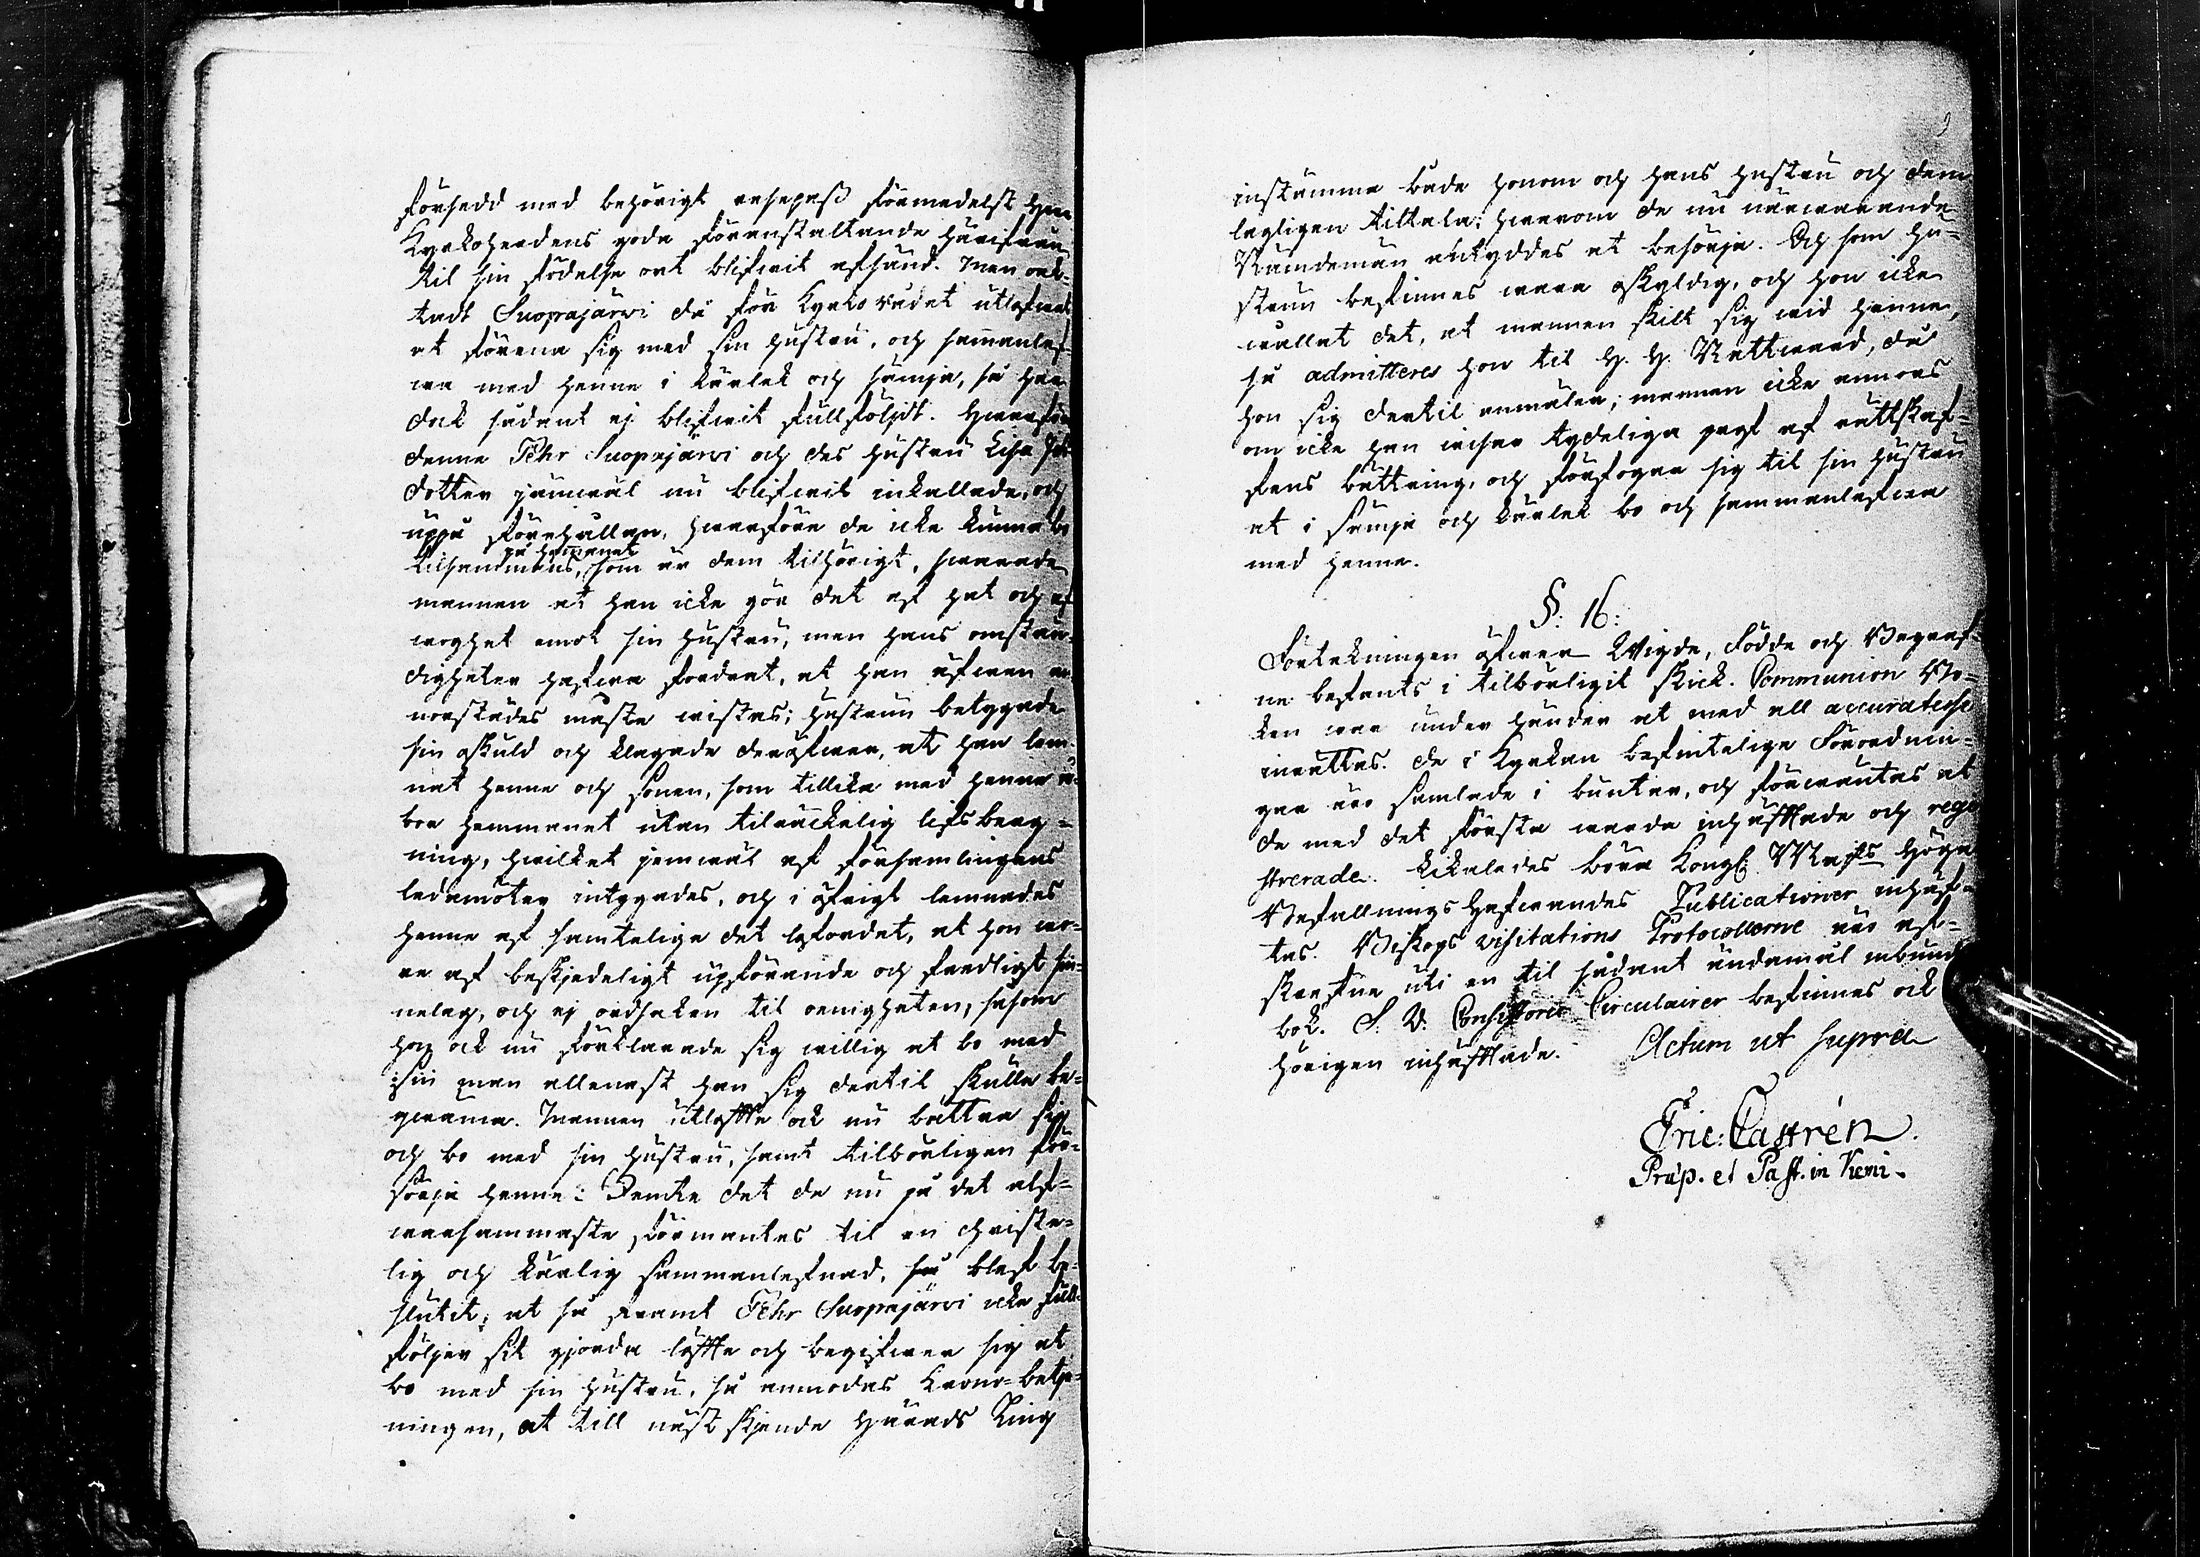 försedd med behörigt respass förmedelst Herr
Kyrkoherdens goda föranstaltande härifrån
til sin födelse ort blifwit afsänd. Men och-
tadt Suopajärwi då för Kyrko rådet utlofwat
at förena sig med sin hustru, och samanlef-
wa med henne i kärlek och sämja, så har
dock sådant ej blifwit fullföljdt. Hwarföre
denne Pehr Suopajärwi och des hustru Lisa
dotter jämwäl nu blifwit inkallade, och
uppå förehållan, hwarföre de icke kunna bo
tilsammans, på hemanet som är dem tilhörigt, swarade
mannen at han icke gör det af hat och af
woghet emot sin hustru, men hans omstän-
digheter hafwa fordrat, at han äfwen an-
norstädes måste wistas; hustrun betygade
sin oskuld och klagade deröfwer, at han lem-
nat henne och sonen, som tillika med henne å-
bor hemmanet utan tilräckelig lifsberg-
ning, hwilket jemwäl af församlingens
ledamöter intygades, och i öfrigt lemnades
henne af samtelige det loford, at hon wo-
re af beskjedeligt upförande och fredligt sin-
nelag, och ej ordsaken til oenigheten, såsom
hon ock nu förklarade sig willig at bo med
sin man allenast han sig dertil skulle be-
qwäma. Mannen utlofte ock nu bättra sig
och bo med sin hustru, samt tilbörligen för-
sörja henne: Jemte det de nu på det alf-
warsammaste förmantes til en christe-
lig och kärlig sammanlefnad, så blef be-
slutit, at så framt Pehr Suopajärwi icke full-
följer sit gjorda löfte och begifwer sig at
bo med sin hustru, så anmodas Krono-betje-
ningen, at till näst skjende Härads Ting
9
instämma både honom och hans hustru och dem
lagligen tiltala; hwarom de nu närwarande
Nämdemän antyddes at besörja. Och som hu-
strun befinnes wara oskyldig, och hon icke
wållat det, at mannen skilt sig wid henne,
så admitteres hon til H. H. Nattward, då
hon sig dertil anmäler; mannen icke annors
om icke han wiser tydeliga prof af rättskaf-
fens bättring, och förfogar sig til sin hustru
at i sämja och kärlek bo och sammanlefwa
med henne.
§: 16:
Förtekningen öfwer Wigde, Födde och Begraf-
ne befants i tilbörligit skick. Communion Bo-
ken war under händer at med all accuratesse
inrättas. De i Kyrkan befintelige Förordnin-
gar äro samlade i bunter, och förwäntes at
de med det första warda inhäfftade och regi-
strerade. Likaledes böra Kongl. Maj:ts Höga
Befallnings Hafwandes Publicationer inhäf-
tas. Biskops visitations Protocollerne äro af-
skrefne uti en til sådant ändamål inbunden
bok. S. V. Consistorii Circulairer befinnes ock
hörigen inhäftade. Actum ut supra
Eric: Castrén.
Præp. et Past. in Kemi.